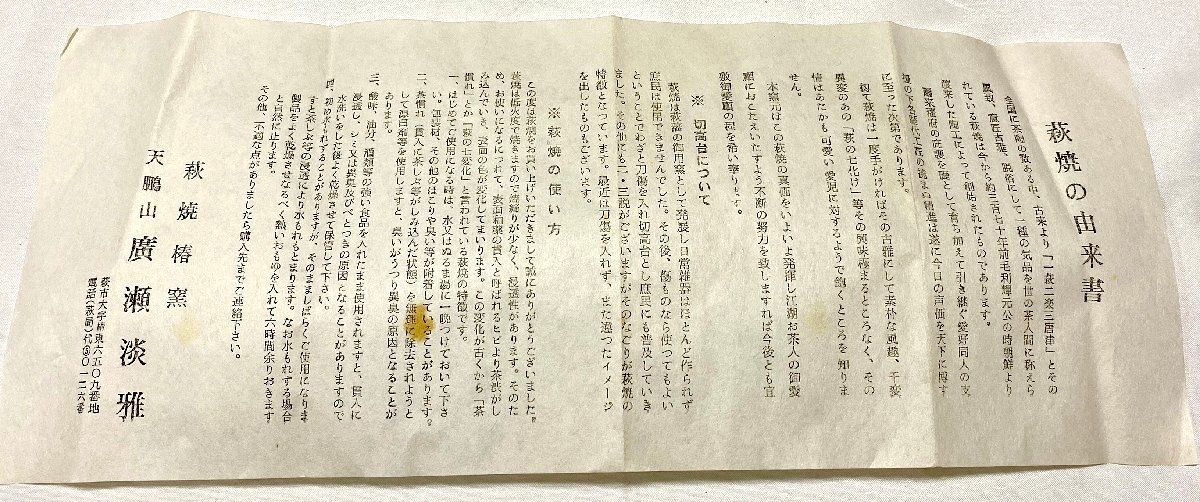 萩焼の由来書
全国に茶碗の数ある中、古来より「一萩二楽三唐津」とその
風致、高匠古雅、脱俗にして一種の気品を世の茶人間に称えら
れている萩焼は今から約三百七十年前毛利輝元公の時朝鮮より
渡来した陶工によって創始されたものであります。
爾来藩府の庇護を礎として育ち加えて引き継ぐ愛好同人の支
に至った次第であります。
初て萩焼は一度手がければその古雅にして素朴な風趣、千変
異変のあの「萩の七化け」等その興味極まるところなく、その
情はあたかも可愛い愛児に対するようで飽くところを知りま
せん。
本窯元はこの萩焼の真価をいよいよ発揮し江湖お茶人の御愛
顧におこたえいたすよう不断の努力を致しますれば今後とも宜
敷御愛顧の程を希い奉ります。
※ 切高台について
萩焼は萩藩の御用窯として発展し日常雑器はほとんど作られず
庶民は使用できませんでした。その後、傷ものなら使つてもよい
ということでわざと刀傷を入れ切高台とし庶民にも普及していき
ました。その他にも二・三説がございますがそのなごりが萩焼の
特徴となっています。最近は刀傷を入れず、また違ったイメージ
を出したものもございます。
※ 萩焼の使い方
この度は萩焼をお買い上げいただきまして誠にありがとうございました。
萩焼は低火度で焼きますので焼締が少なく、浸透性があります。そのた
め、お使いになるにつれて、表面釉薬の貫入と呼ばれるヒビより茶渋がし
み込んでいき、表面の色が変化してまいります。この変化が古くから「茶
慣れ」とか「萩の七変化」と言われている萩焼の特徴です。
一、はじめてご使用になる時は、水又はぬるま湯に一晩つけておいて下さ
い。包装材、その他のほこりや臭い等が附着していることがあります。
二、茶慣れ（貫入に茶しぶ等がしみ込んだ状態）を無理に除去されようと
して漂白剤等を使用しますと、臭いがうつり異臭の原因となることが
あります。
三、酸味、油分、酒類等の強い食品を入れたまま使用されますと、貫入に
浸透し、シミ又は異臭及びべとつきの原因となることがありますので
水洗いをした後よく乾燥させて保管して下さい。
四、初め水もれすることがありますが、そのまましばらくご使用になりま
すと茶しぶ等の浸透により水もれもとまります。なお水もれする場合
製品をよく乾燥させなるべく熱いおもゆを入れて六時間余りおきます
と自然に止ります。
その他、不適な点がありましたら購入先までご連絡下さい。
萩焼椿窯
天鵬山 廣瀬淡雅
萩市大字椿東六五〇九番地
電話（萩局）代②〇一二六番